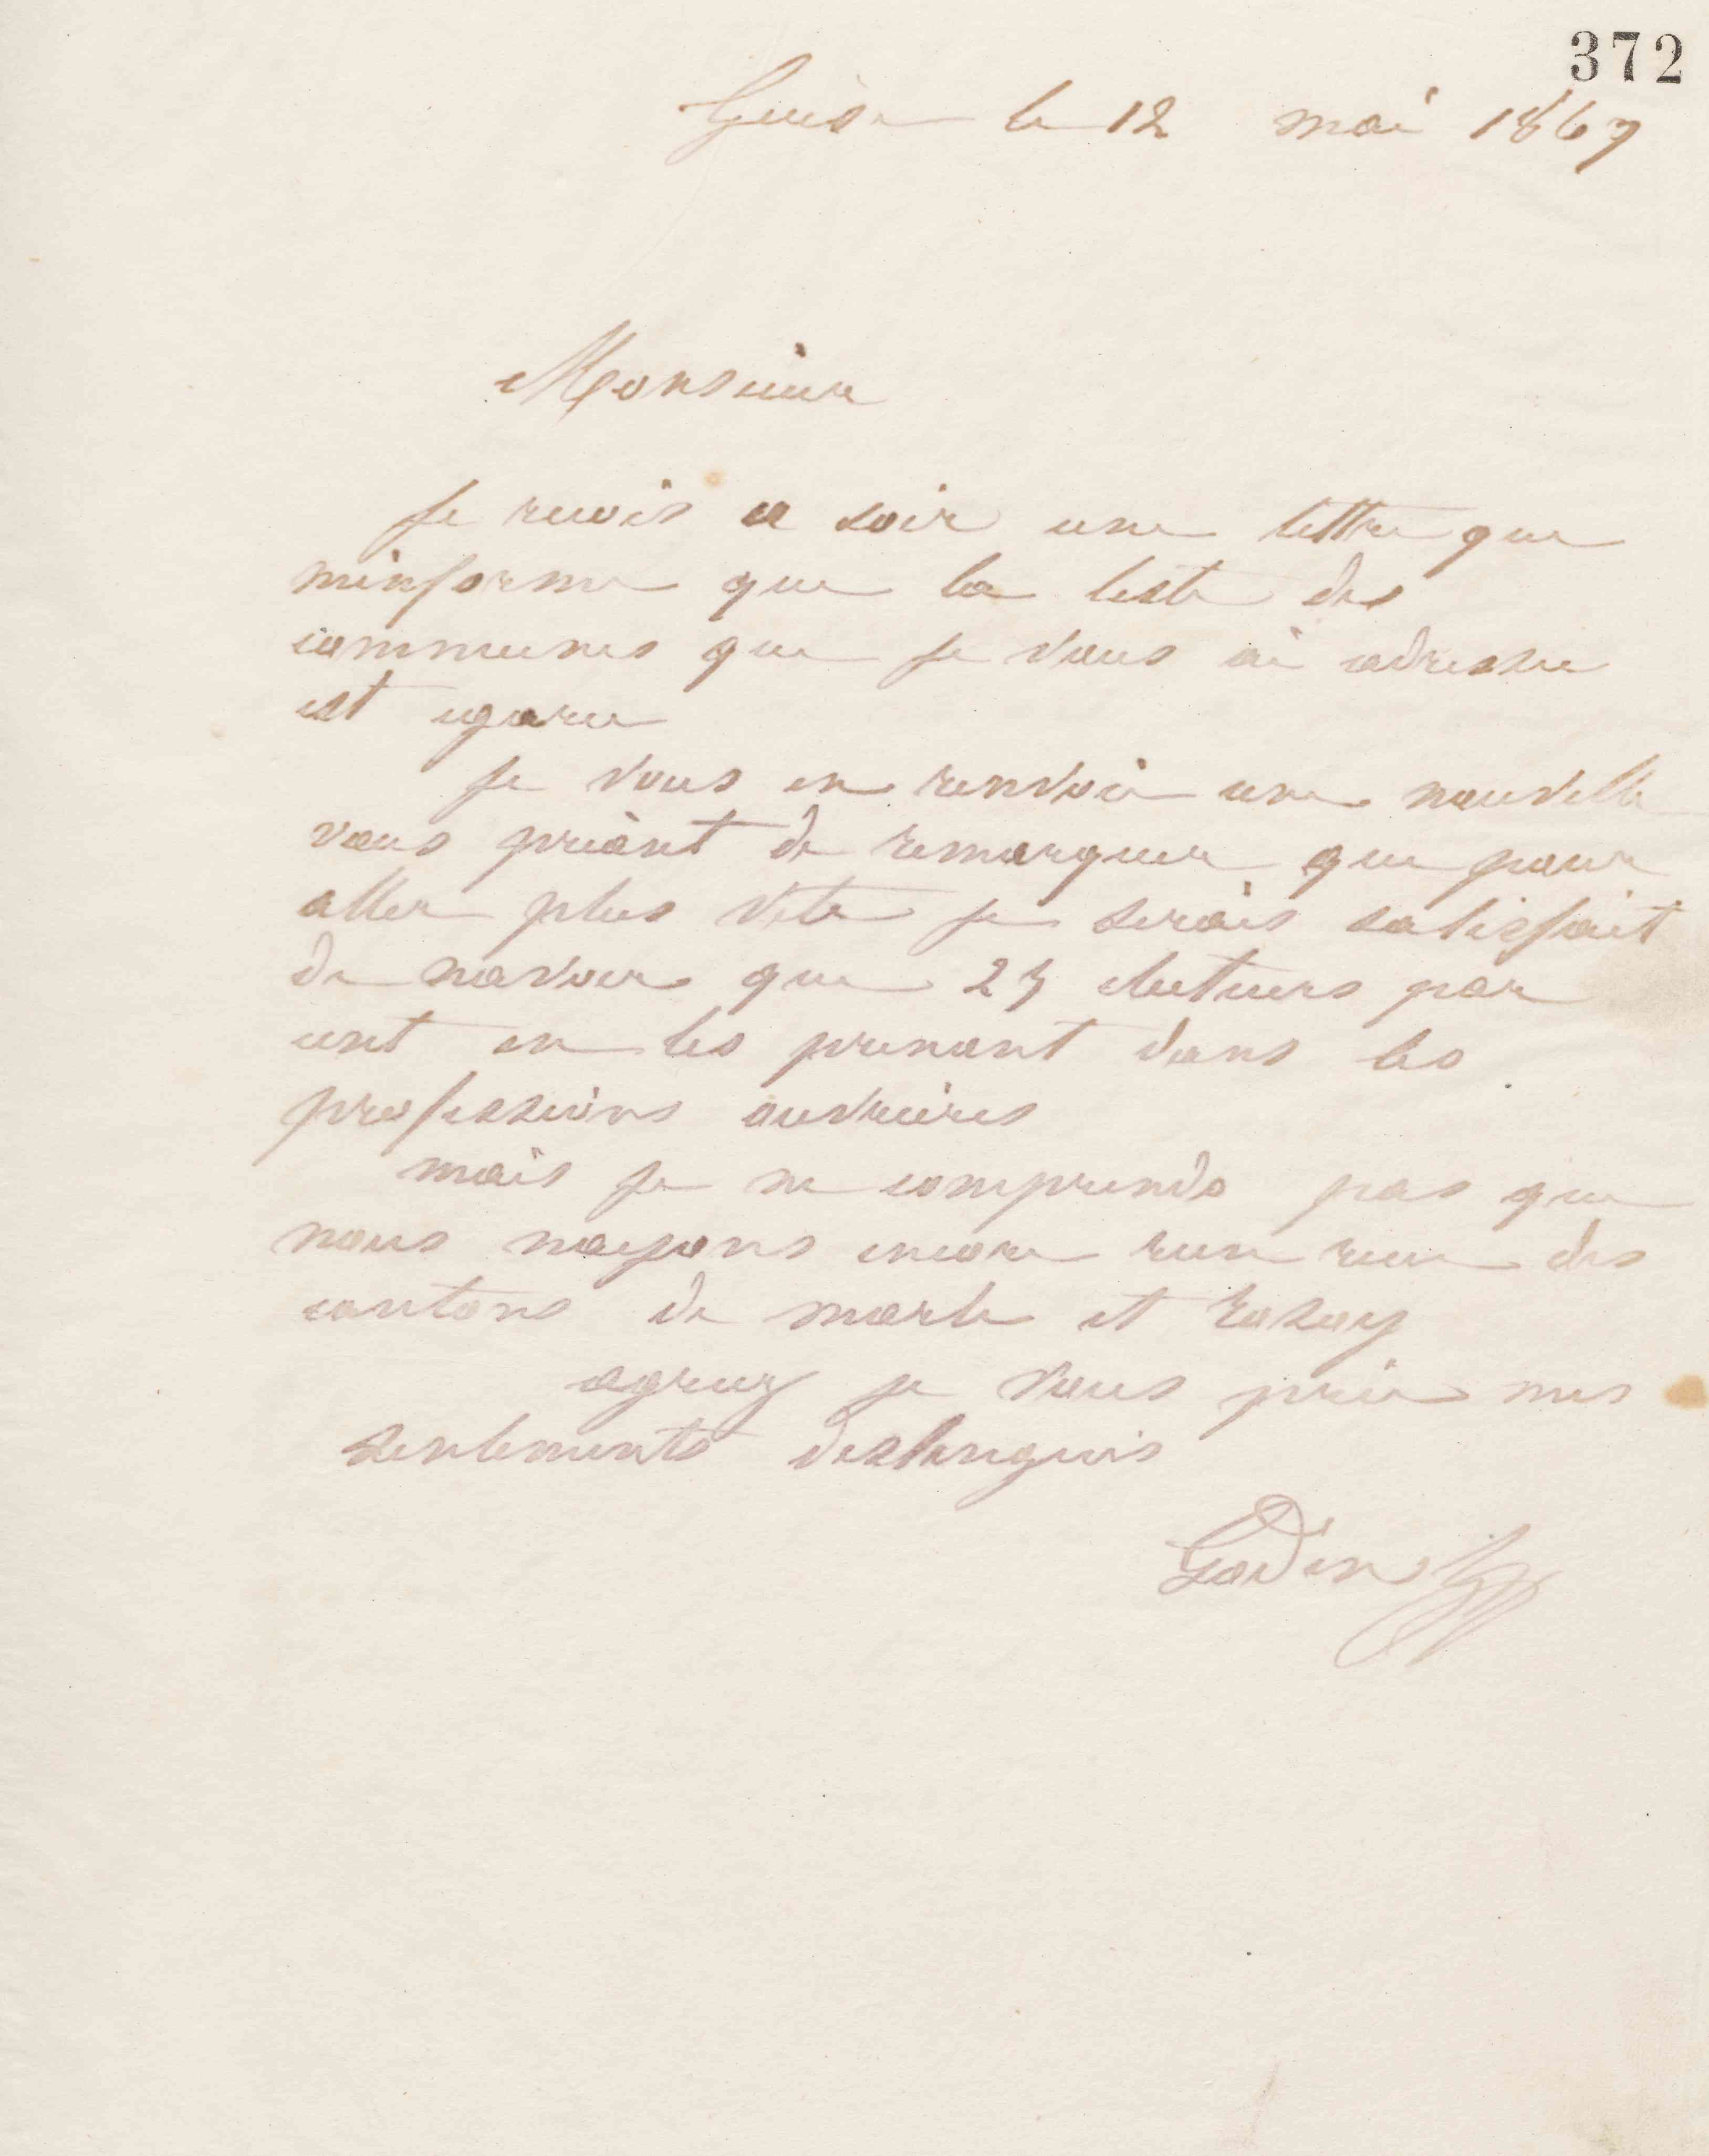 372
Guise le 12 mai 1867
Monsieur
Je recois ce soir une lettre que
minforme que la liste des
communes que je vous ai adressee
est egaree
Je vous en renvoie une nouvelle
vous priant de remarquer que pour
aller plus vite je serais satisfait
de navoir que 25 electeurs par
cent en les prenant dans les
professions ouvrieres
mais je ne comprends pas que
nous nayons encore rien recu des
cantons de marle et rozoy
agreez je vous prie mes
sentiments destingues
Godin